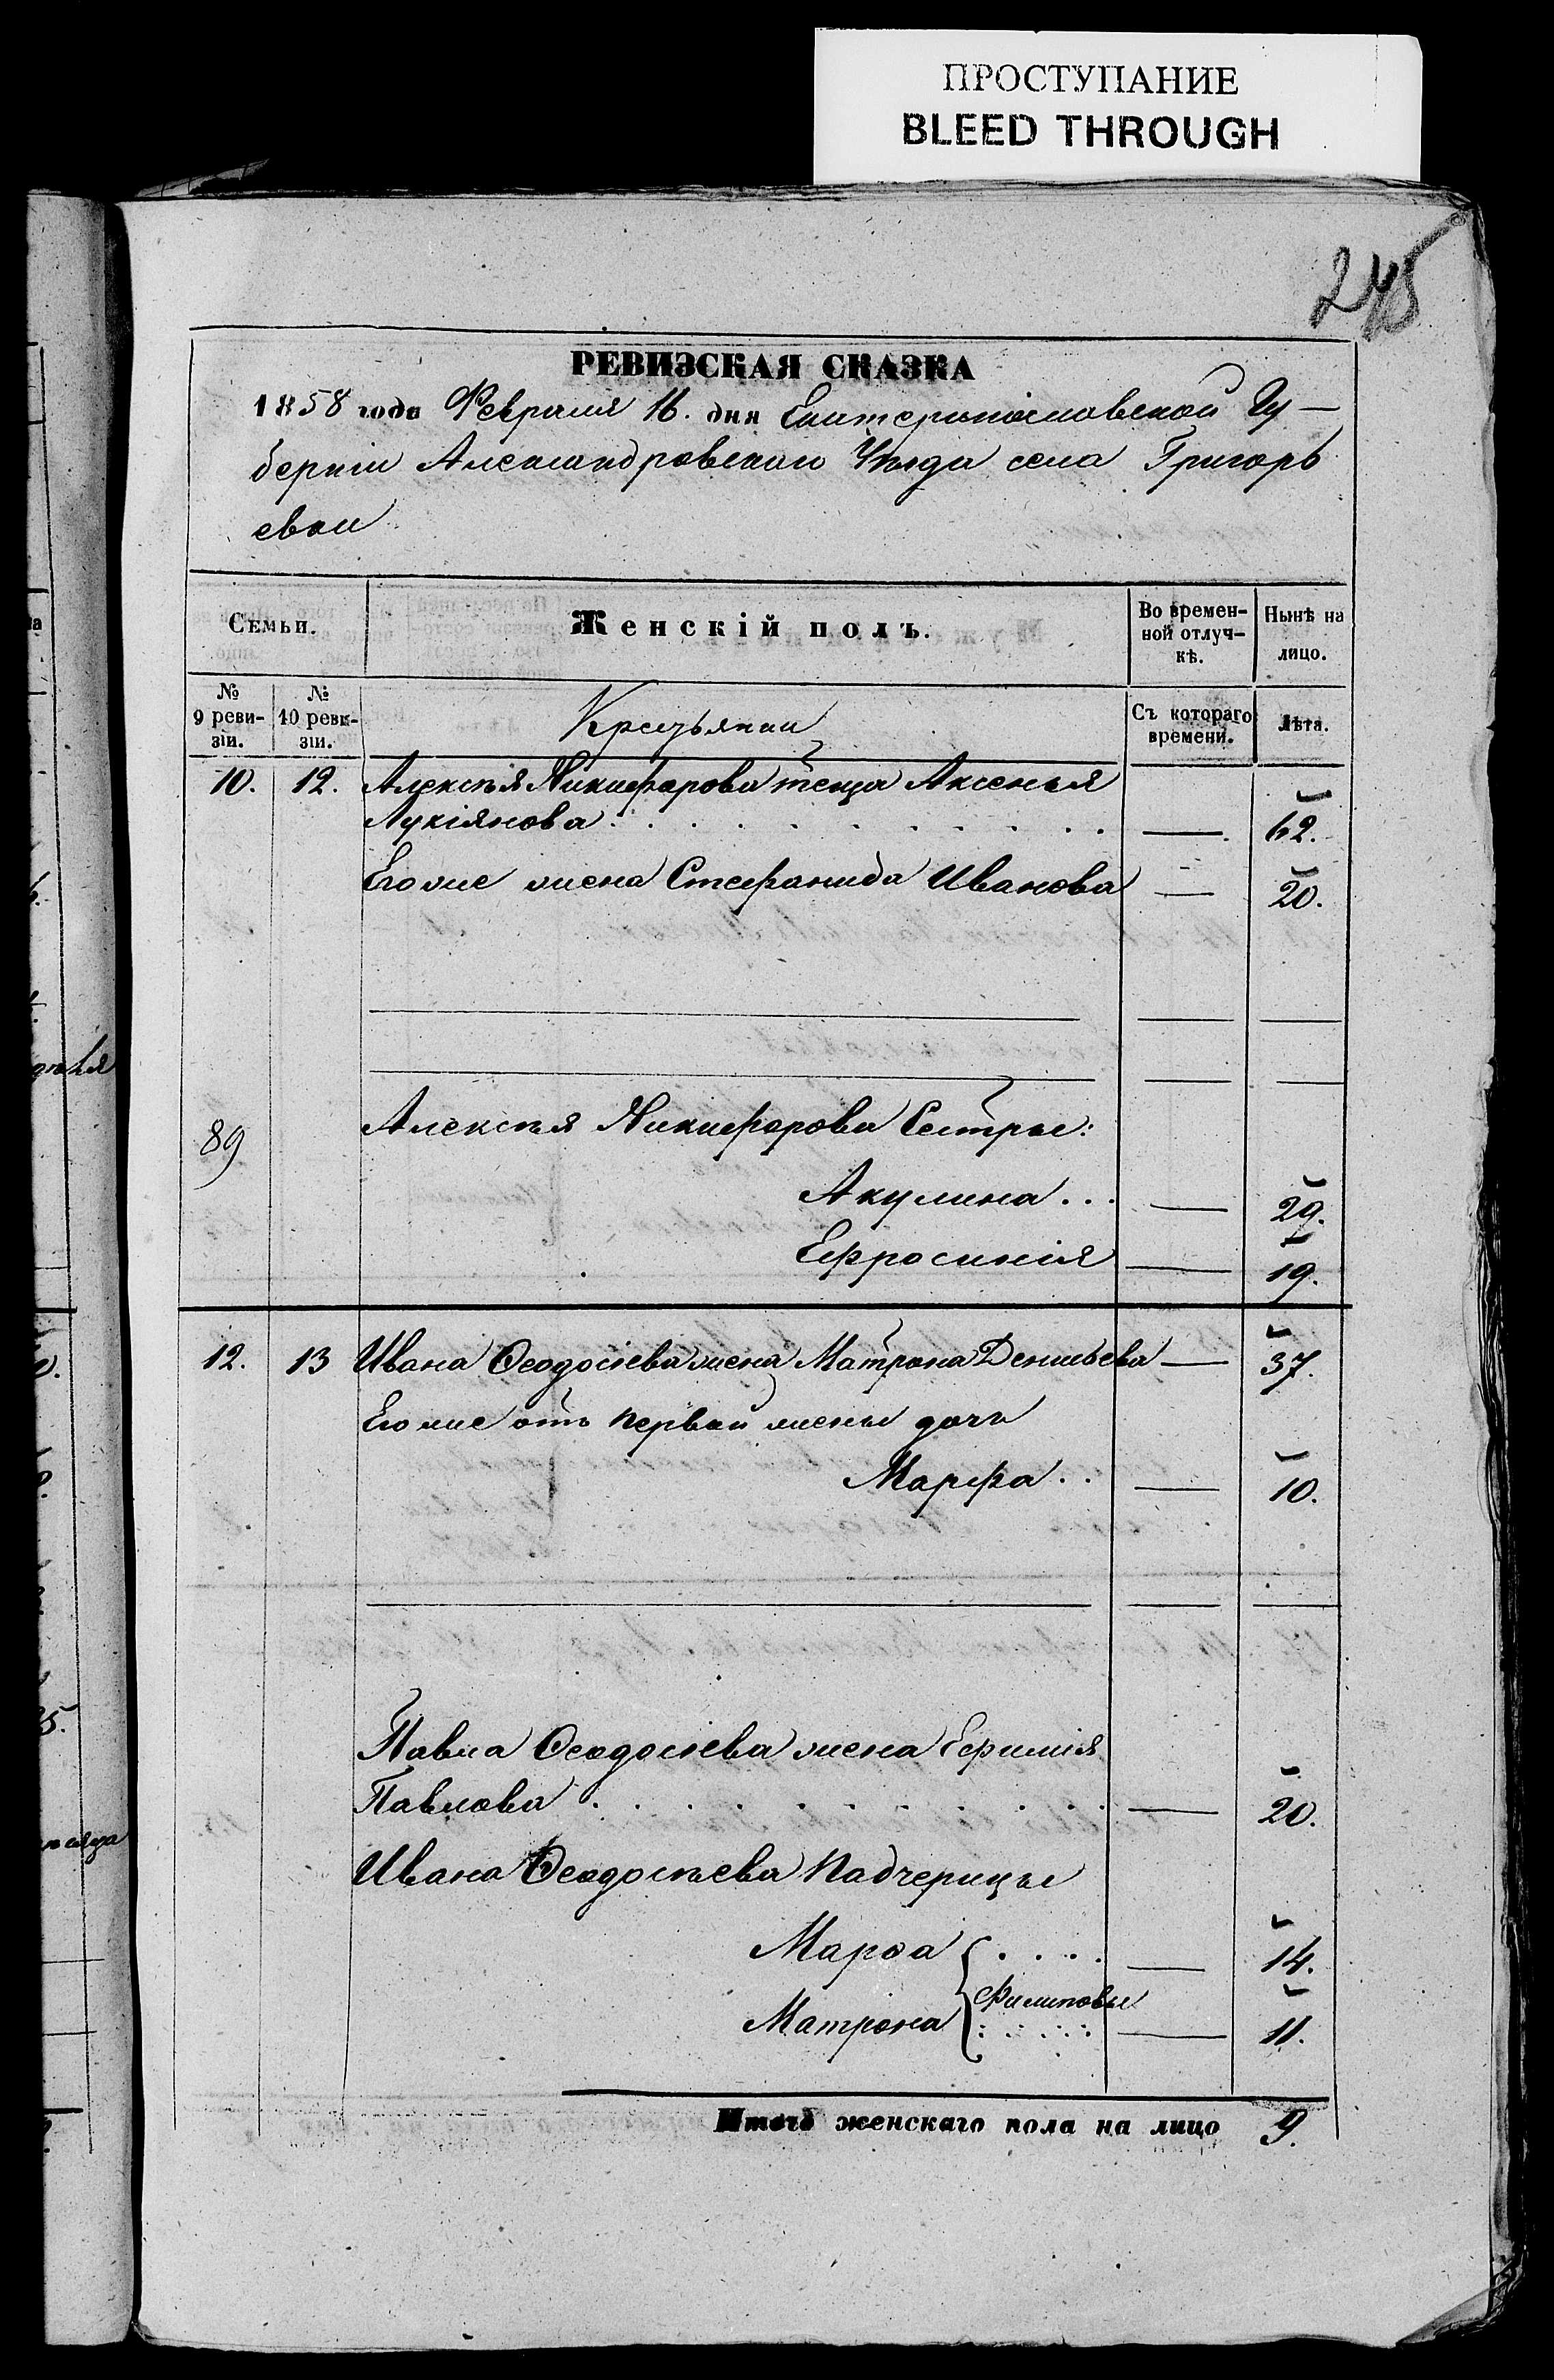 ПРОСТУПАНИЕ
BLEED THROUGH
245
РЕВИЗСКАЯ СКАЗКА
1858 года Февраля 16. дня Екатеринославской Гу—
берніи Александровскаго Уѣзда села Григорь
евки
Семьи.
Женскій полъ.
Во времен-
ной отлуч-
кѣ.
Нынѣ на
лицо.
№
9 реви-
зіи.
№
10 реви-
зіи.
Крестьянки
Съ котораго
времени.
Лѣта.
10. 12. Алексѣя Никифорова теща Аксенья
Лукіянова . . . . . . . . . . . — 62.
Его же жена Стефанида Иванова — 20.
89 Алексѣя Никифорова Сестры:
Акулина . . . — 29.
Ефросинія — 19.
12. 13 Ивана Ѳеодосіева жена Матрона Денисьева — 37.
Его же отъ первой жены дочь
Марфа . . — 10.
Павла Ѳеодосіева жена Ефимія
Павлова . . . . . . . . . . . — 20.
Ивана Ѳеодосѣева Падчерицы
Марѳа . . . . — 14.
Филиповы
Матрона . . . . . — 11.
Итого женскаго пола на лицо 9.